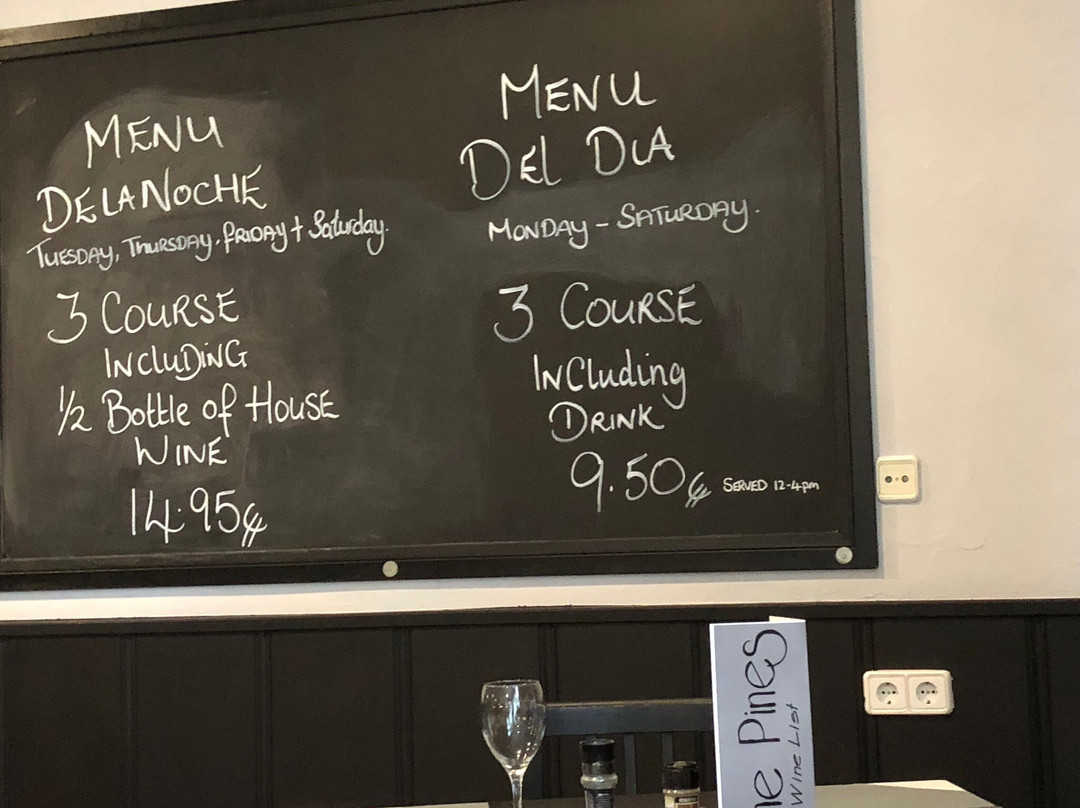 MENU
DELANOCHE
TUESDAY, THURSDAY, FRIDAY + Saturday.
3 COURSE
INCLUDING
1/2 Bottle of HOUSE
WINE
14.95€
MENU
DEL DIA
MONDAY - SATURDAY.
3 COURSE
INCluding
DRINK
9.50€ SERVED 12-4pm
Pines
Wine List